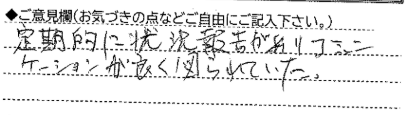 ◆ご意見欄(お気づきの点などご自由にご記入下さい。)
定期的に状況報告がありコミュニ
ケーションが良く図られていた。